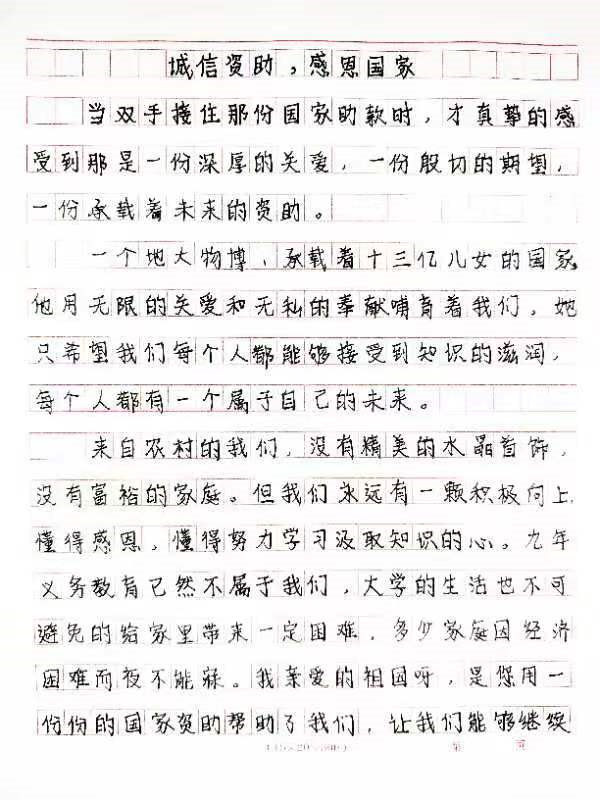 诚信资助，感恩国家
当双手接住那份国家助款时，才真挚的感
受到那是一份深厚的关爱，一份殷切的期望，
一份承载着未来的资助。
一个地大物博，承载着十三亿儿女的国家
他用无限的关爱和无私的奉献哺育着我们，她
只希望我们每个人都能够接受到知识的滋润，
每个人都有一个属于自己的未来。
来自农村的我们，没有精美的水晶首饰，
没有富裕的家庭。但我们永远有一颗积极向上
懂得感恩，懂得努力学习汲取知识的心。九年
义务教育已然不属于我们，大学的生活也不可
避免的给家里带来一定困难，多少家庭因经济
困难而夜不能寐。我亲爱的祖国呀，是您用一
份份的国家资助帮助了我们，让我们能够继续
第 页